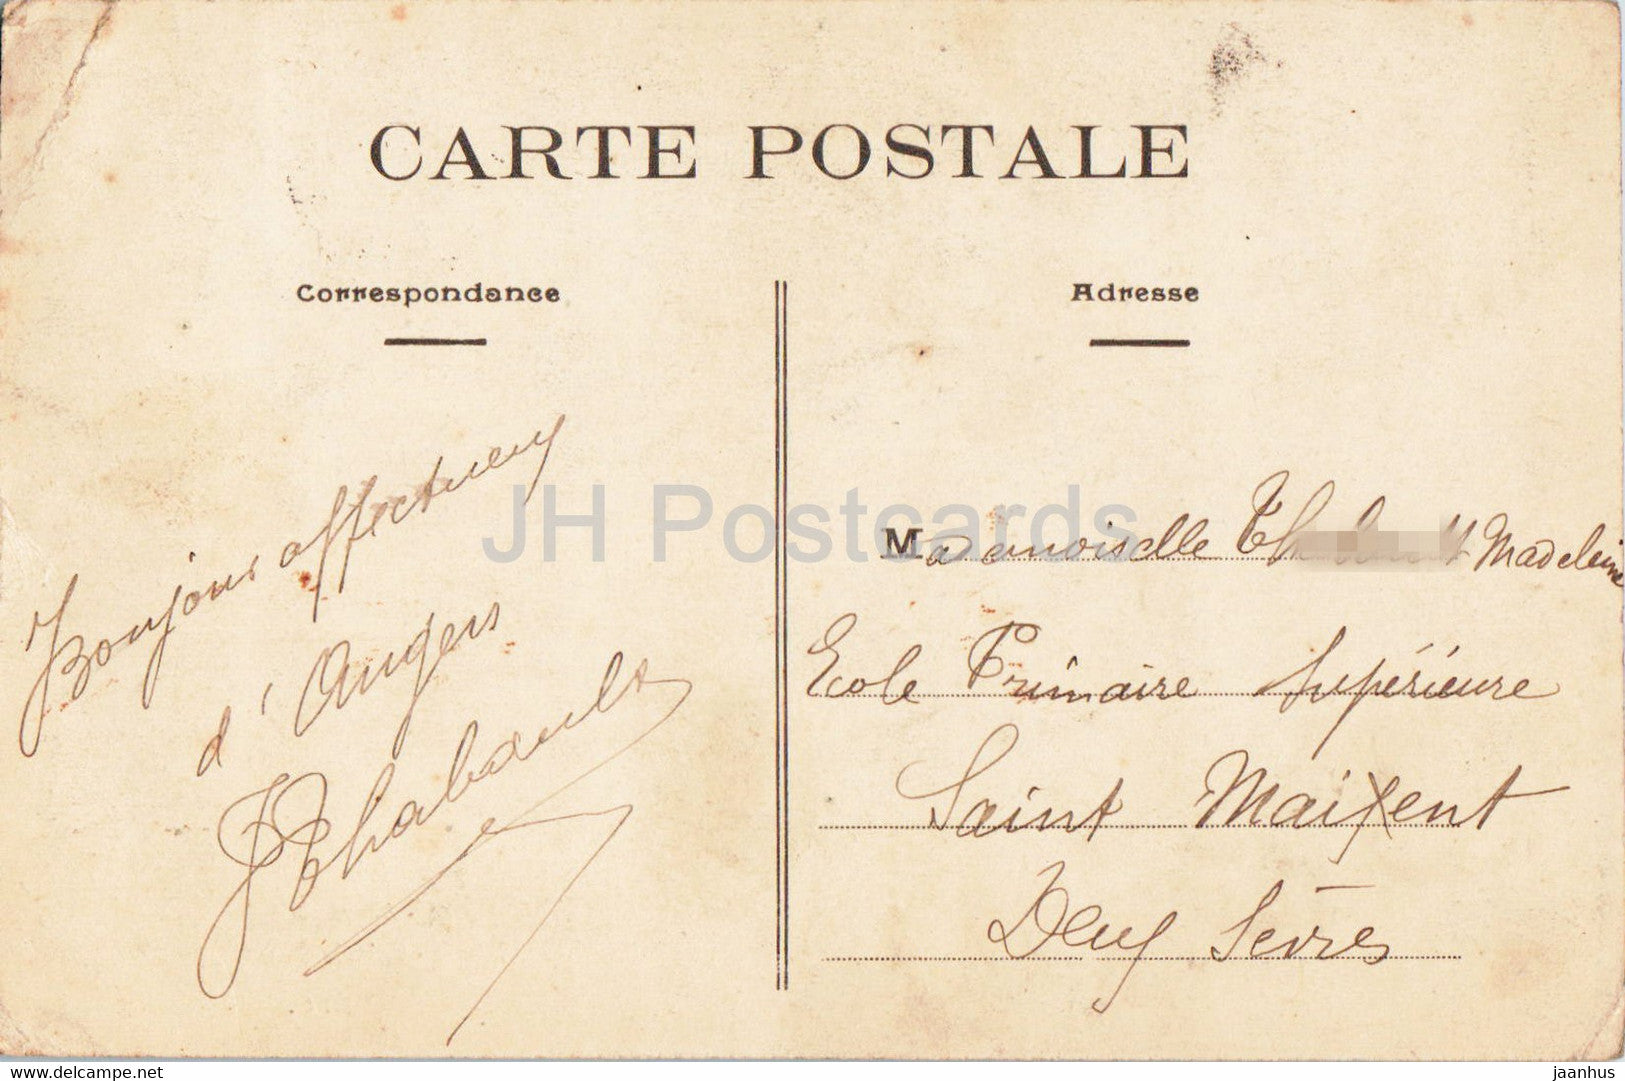 CARTE POSTALE
Correspondance
Adresse
Bonjour affectueux
d'Angers
JH Postcards
Mademoiselle Madeleine
Ecole Primaire Supérieure
Saint Maixent
Deux Sèvres
www.delcampe.net
jaanhus